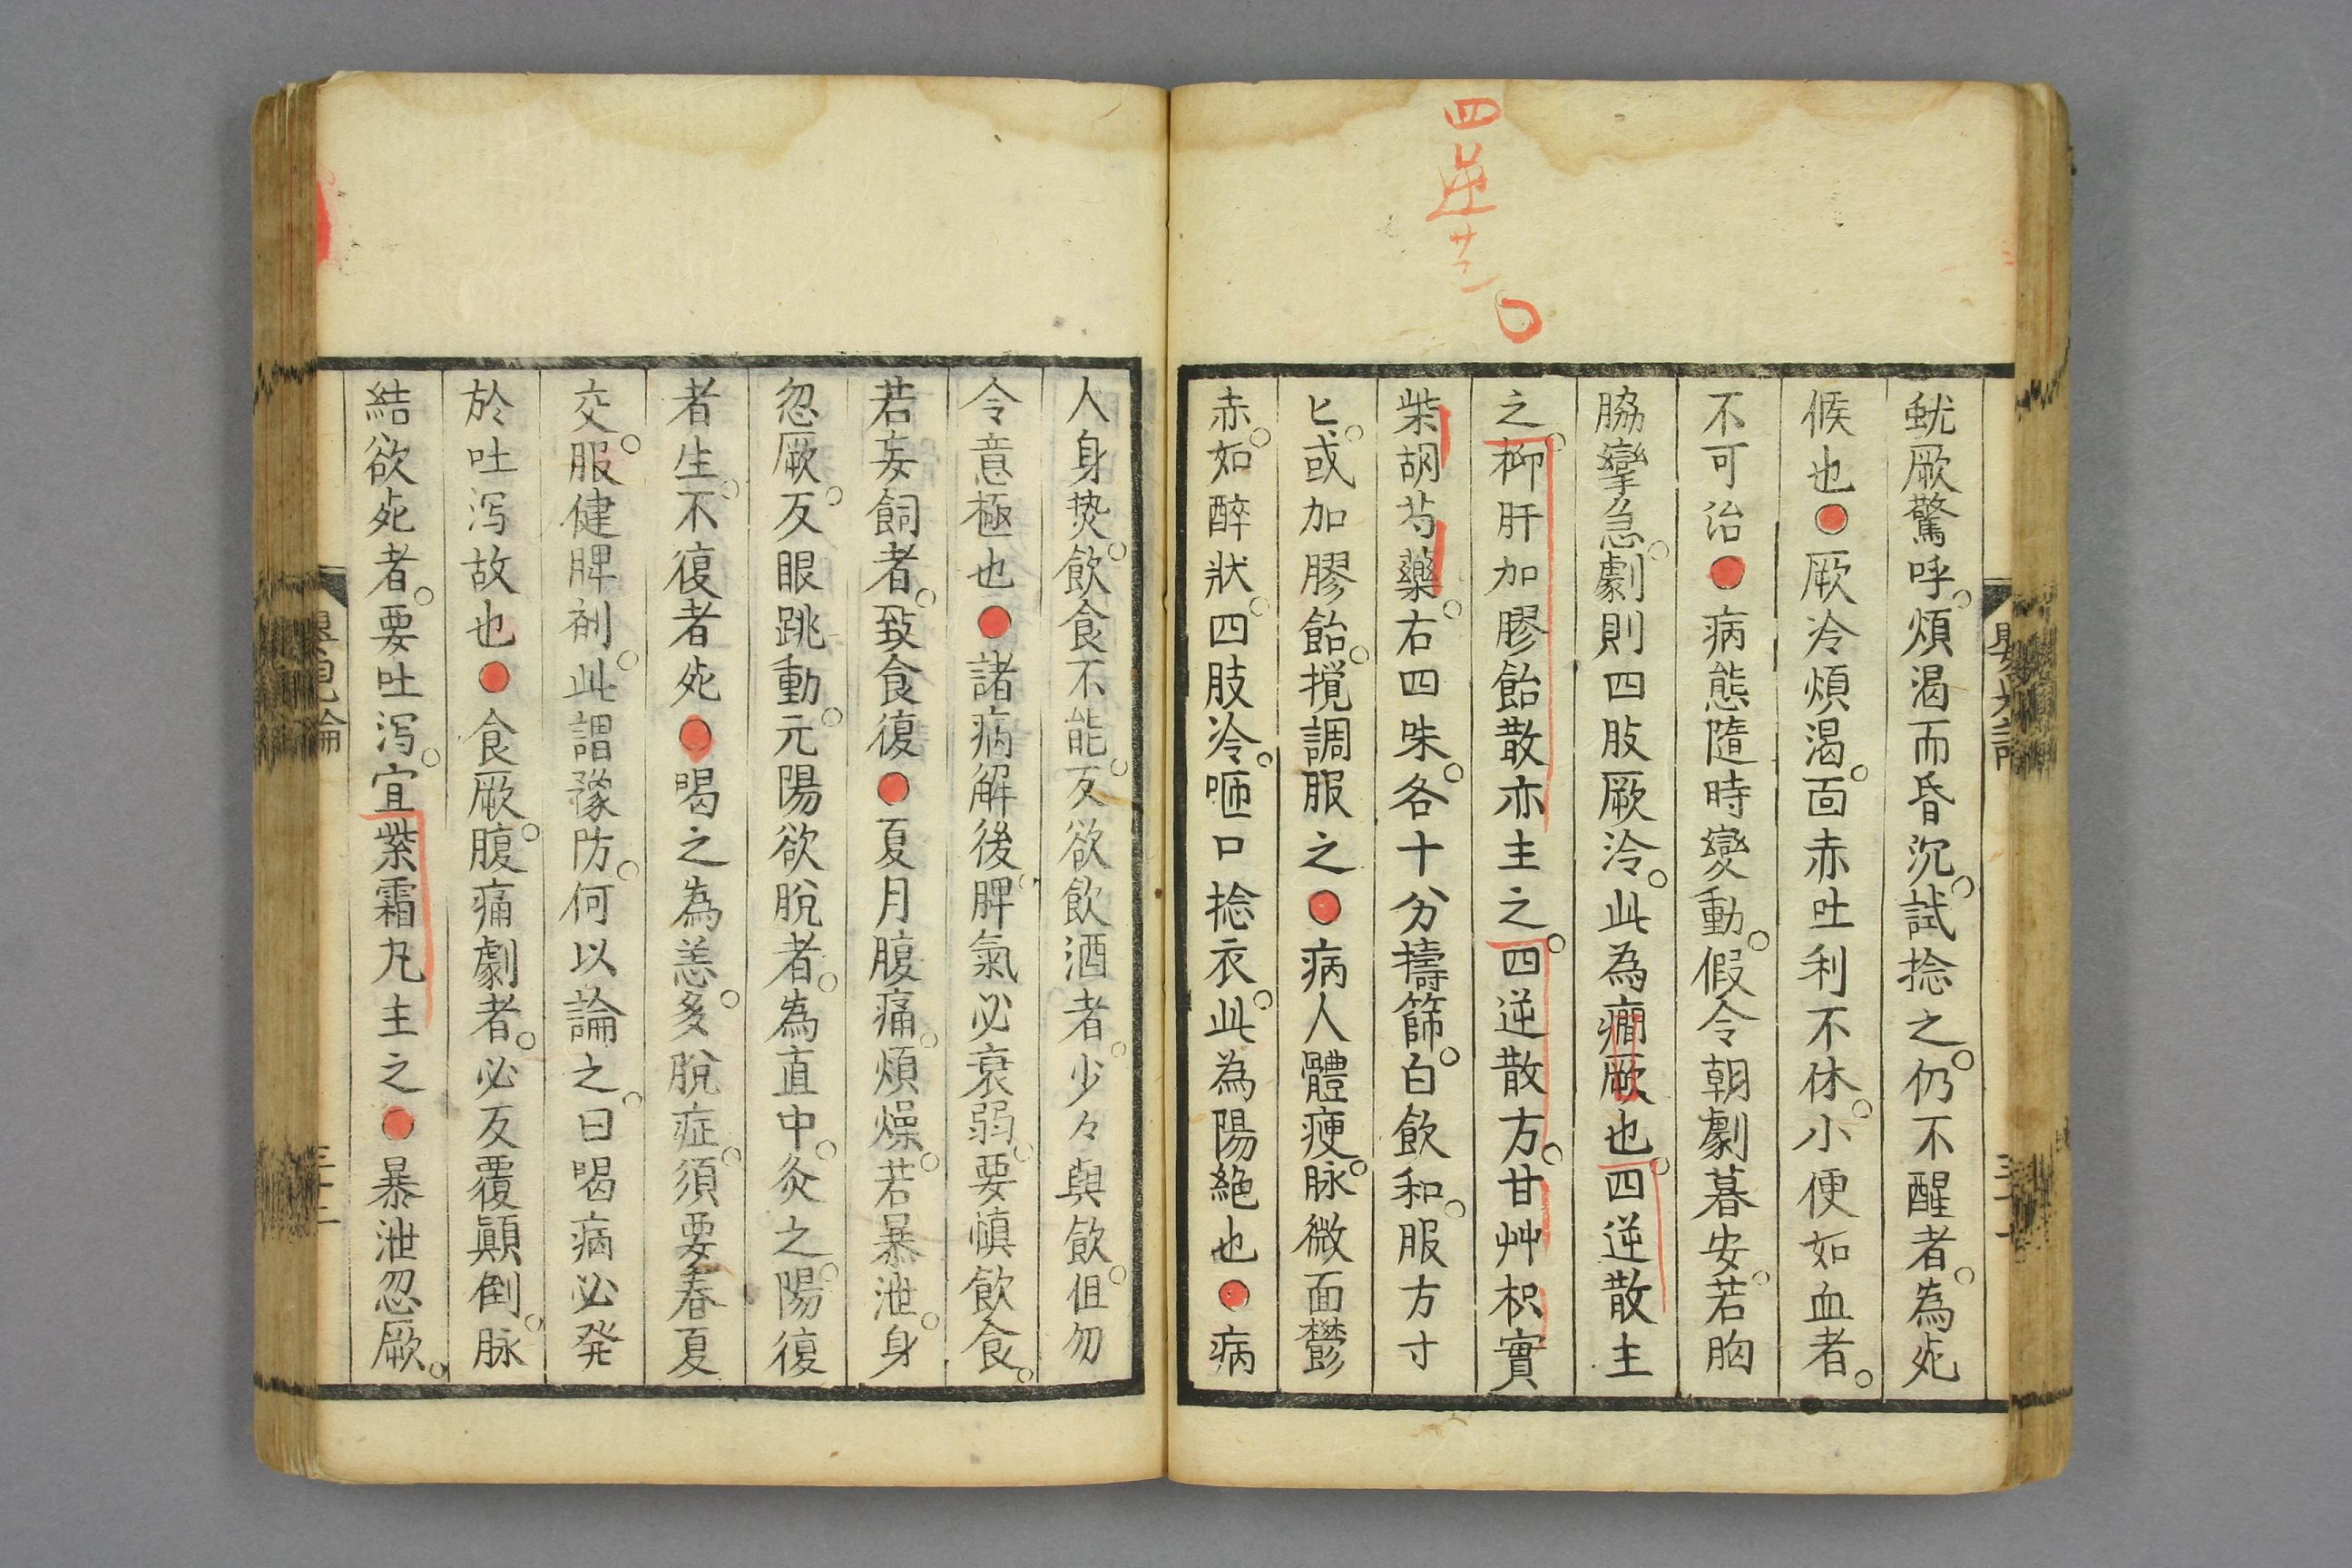 四逆廿二
蚘厥驚呼。煩渴而昏沉。試捻之。仍不醒者。為死
候也●厥冷煩渴。面赤吐利不休。小便如血者。
不可治●病態隨時變動。假令朝劇暮安。若胸
脇攣急。劇則四肢厥冷。此為癇厥也。四逆散主
之。抑肝加膠飴散亦主之。四逆散方。甘艸枳實
柴胡芍藥。右四味。各十分擣篩。白飲和。服方寸
匕。或加膠飴。攪調服之●病人體痩。脉微面鬱
赤。如醉狀。四肢冷。咂口捻衣。此為陽絶也●病
人身𤍠。飲食不能。反欲飲酒者。少々與飲。但勿
令意極也●諸病解後。脾氣必衰弱。要慎飲食。
若妄飼者。致食復●夏月腹痛。煩燥。若暴泄。身
忽厥。反眼跳動。元陽欲脫者。為直中。灸之。陽復
者生。不復者死●暍之為恙。多脫症。須要春夏
交。服健脾劑。此謂豫防。何以論之。曰暍病必発
於吐泻故也●食厥。腹痛劇者。必反覆顚倒。脉
結欲死者。要吐泻。宜紫霜丸主之●暴泄忽厥。